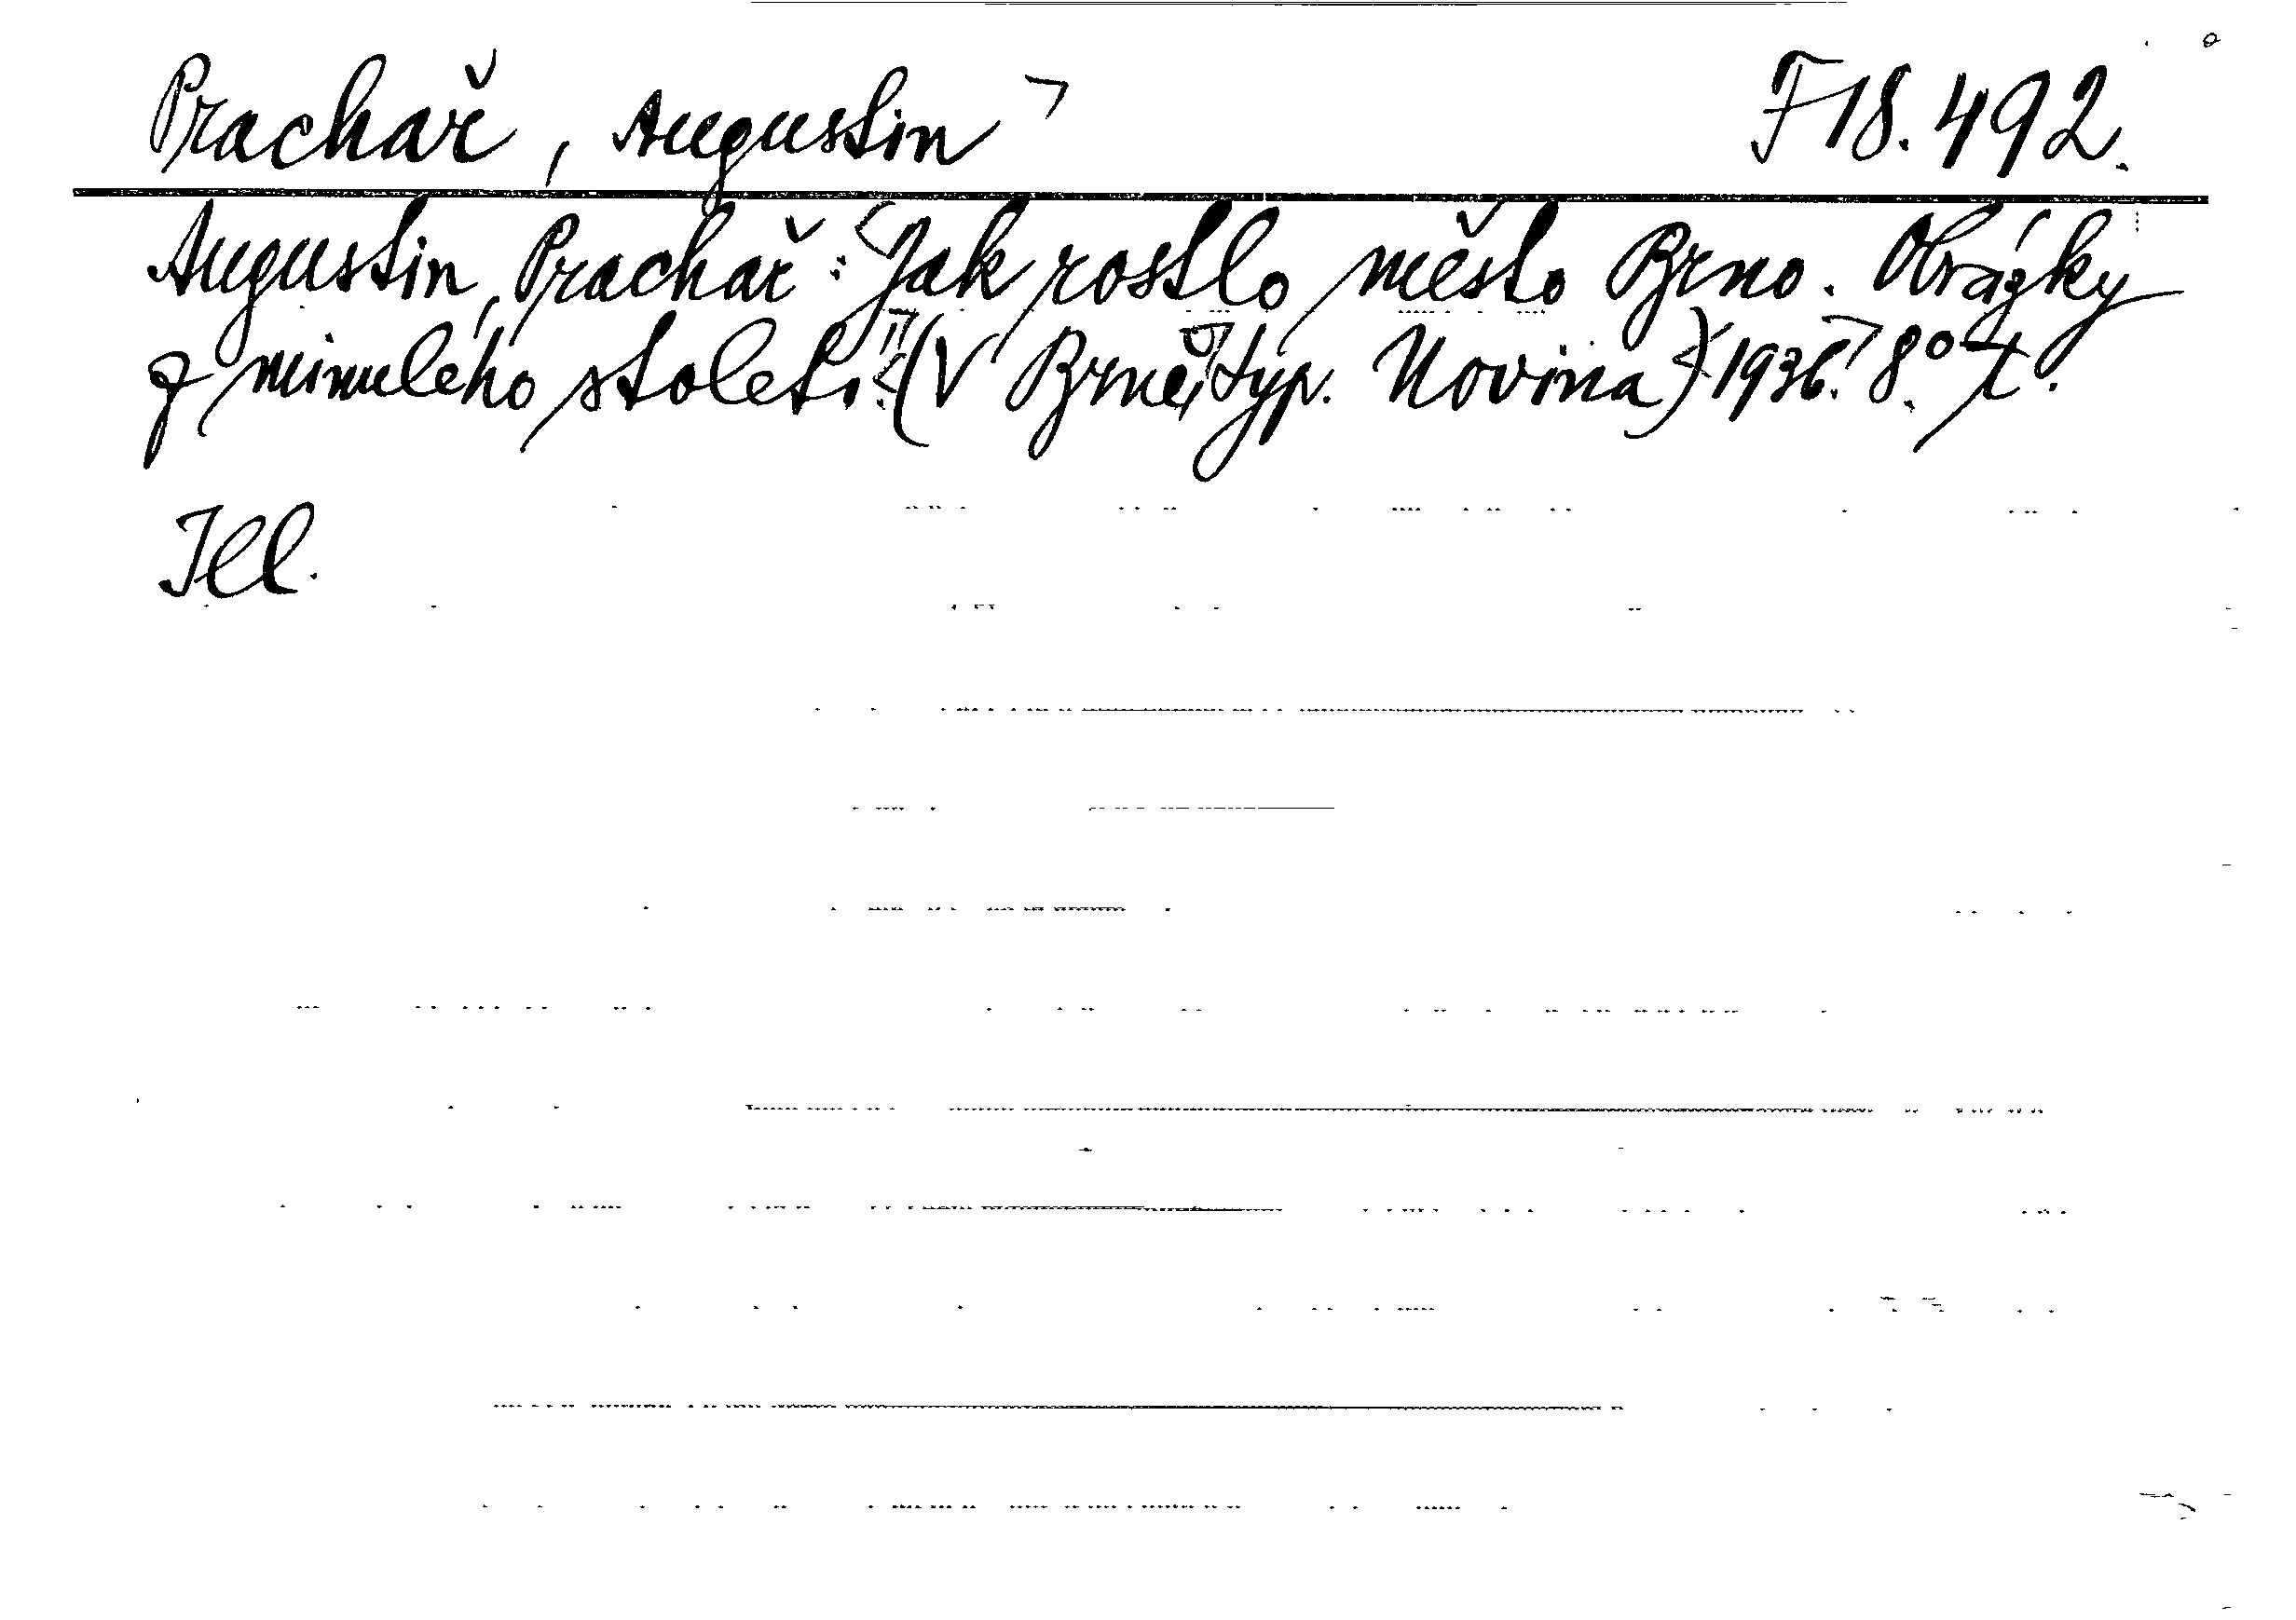 Prachař, Augustin ¬ F 18.492.
Augustin Prachař: <Jak rostlo město Brno. Obrázky
z minulého století.> (V Brně, typ. Novina) <1936.> 8°. t.
Ill.